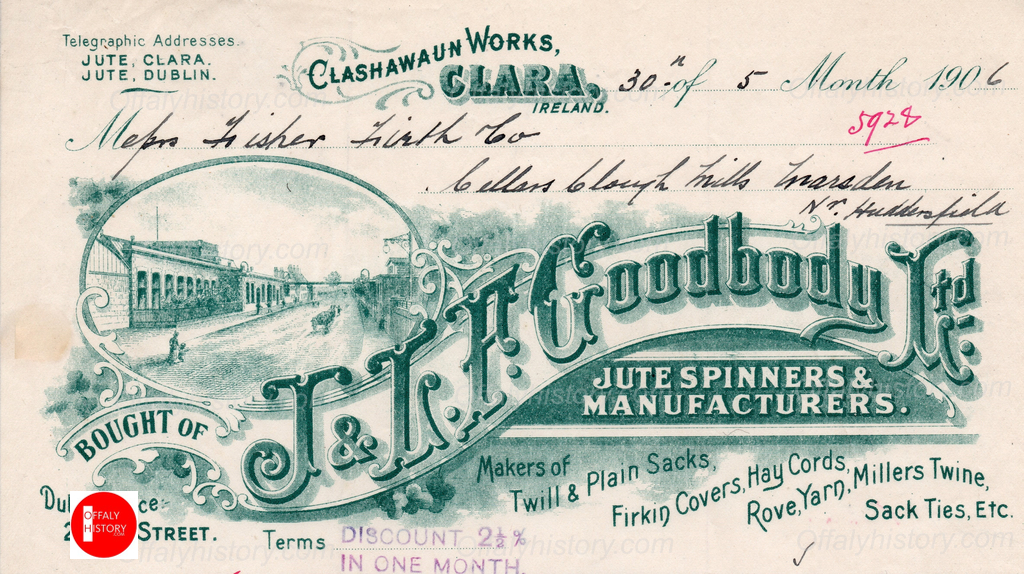 Telegraphic Addresses.
JUTE, CLARA.
JUTE, DUBLIN.
CLASHAWAUN WORKS,
CLARA,
IRELAND.
30th of 5 Month 1906
5928
Messrs Fisher Firth Co
Cellars Clough Mills Marsden
Nr. Huddersfield
BOUGHT OF
J & L.F. Goodbody Ltd.
JUTE SPINNERS &
MANUFACTURERS.
Makers of
Twill & Plain Sacks,
Firkin Covers, Hay Cords,
Rove, Yarn, Millers Twine,
Sack Ties, Etc.
STREET.
OFFALY
HISTORY
.COM
Terms DISCOUNT 2½%
IN ONE MONTH.
Offalyhistory.com